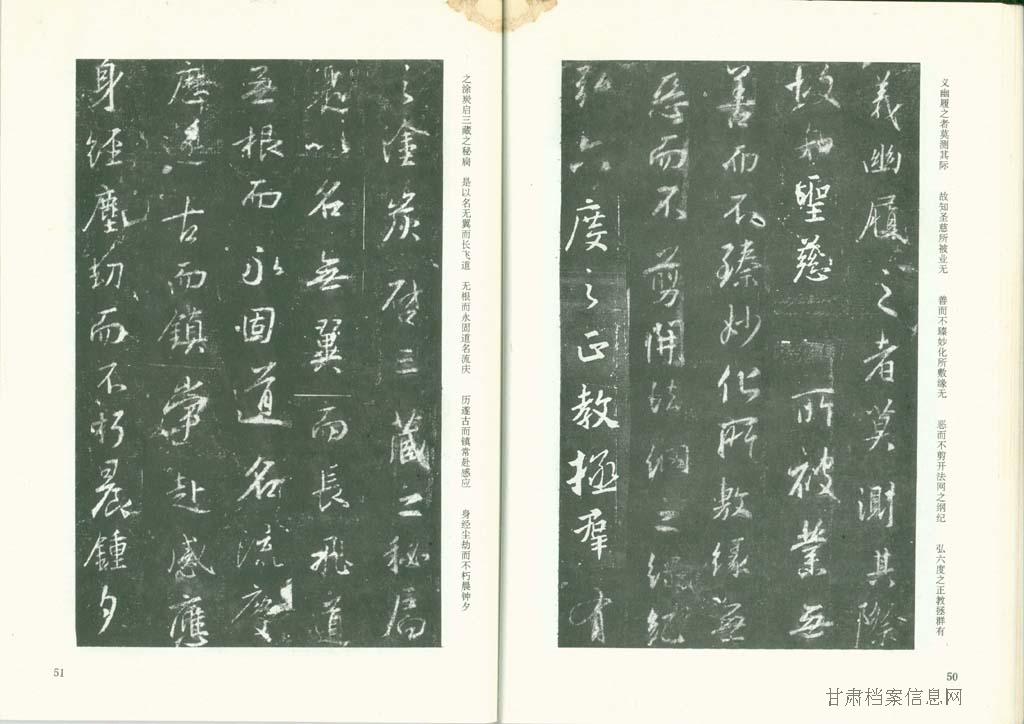 义幽履之者莫测其际 故知圣慈所被业无 善而不臻妙化所敷缘无 恶而不剪开法网之纲纪 弘六度之正教拯群有
義幽履之者莫測其際
故知聖慈所被業無
善而不臻妙化所敷緣無
惡而不剪開法網之綱紀
弘六度之正教拯羣有
50
之涂炭启三藏之秘扃 是以名无翼而长飞道 无根而永固道名流庆 历遂古而镇常赴感应 身经尘劫而不朽晨钟夕
之塗炭啓三藏之秘扃
是以名無翼而長飛道
無根而永固道名流慶
歷遂古而鎮常赴感應
身經塵劫而不朽晨鍾夕
51
甘肃档案信息网